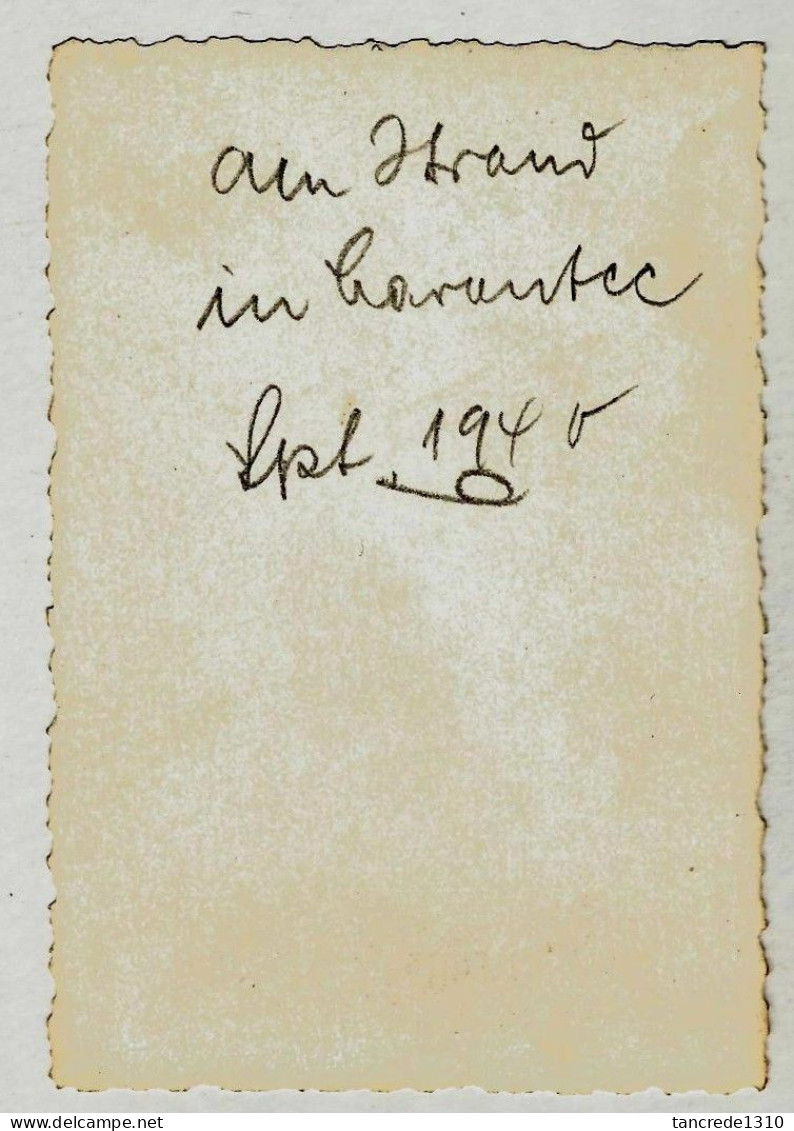 am Strand
in Carantec
Sept. 1940
delcampe.net
tancrede1310